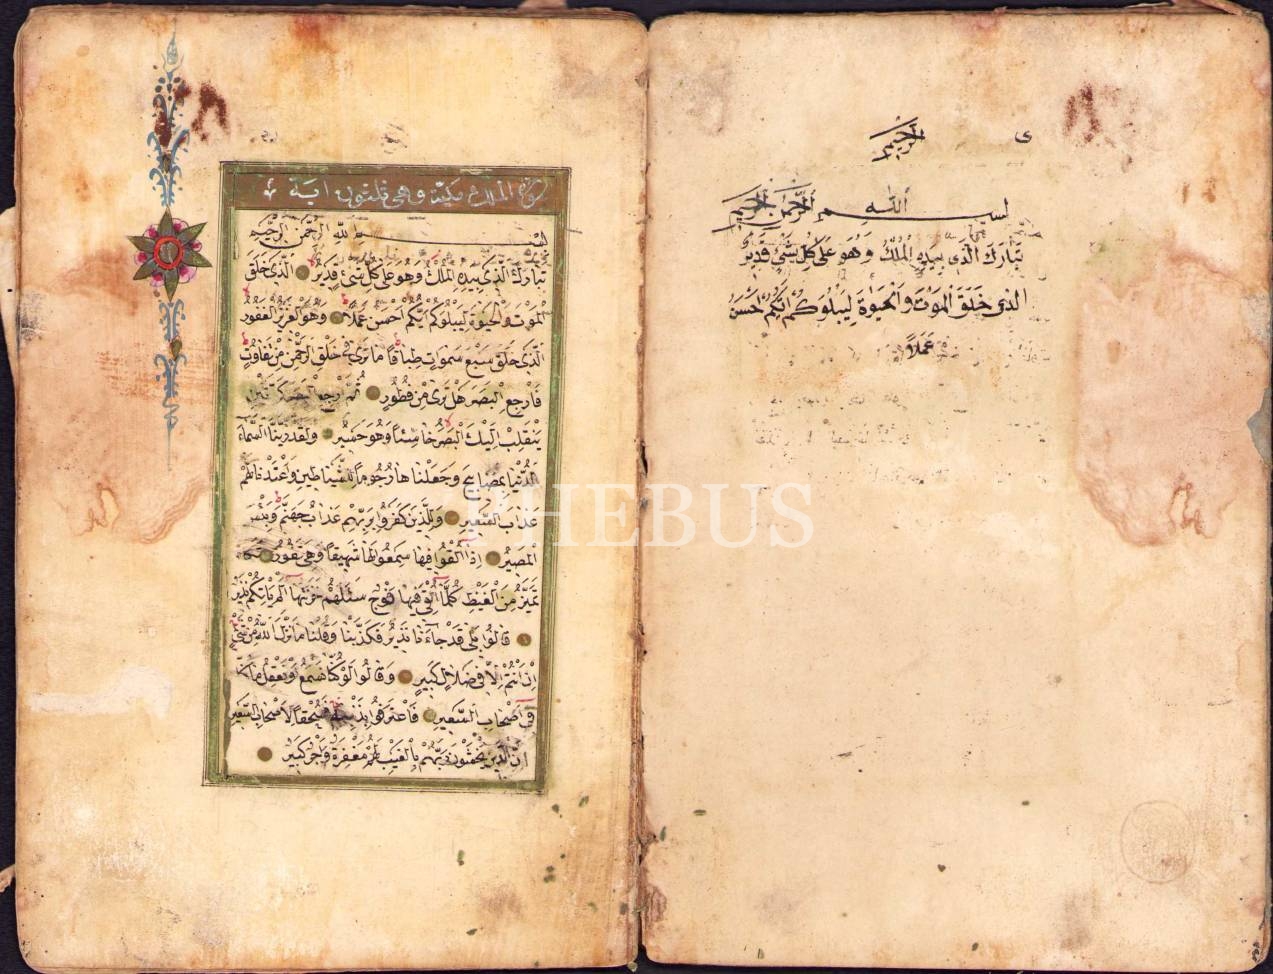 ى
الرحيم
بسم الله الرحمن الرحيم
تَبَارَكَ الَّذِى بِيَدِهِ الْمُلْكُ وَهُوَ عَلٰى كُلِّ شَىْءٍ قَدِيرٌ
الَّذِى خَلَقَ الْمَوْتَ وَالْحَيٰوةَ لِيَبْلُوَكُمْ اَيُّكُمْ اَحْسَنُ
عَمَلًا
سورة الملك مكية وهى ثلثون اية
بسم الله الرحمن الرحيم
تَبَارَكَ الَّذِى بِيَدِهِ الْمُلْكُ وَهُوَ عَلٰى كُلِّ شَىْءٍ قَدِيرٌ الَّذِى خَلَقَ
الْمَوْتَ وَالْحَيٰوةَ لِيَبْلُوَكُمْ اَيُّكُمْ اَحْسَنُ عَمَلًا وَهُوَ الْعَزِيزُ الْغَفُورُ
الَّذِى خَلَقَ سَبْعَ سَمٰوَاتٍ طِبَاقًا مَا تَرٰى فِى خَلْقِ الرَّحْمٰنِ مِنْ تَفَاوُتٍ
فَارْجِعِ الْبَصَرَ هَلْ تَرٰى مِنْ فُطُورٍ ثُمَّ ارْجِعِ الْبَصَرَ كَرَّتَيْنِ
يَنْقَلِبْ اِلَيْكَ الْبَصَرُ خَاسِئًا وَهُوَ حَسِيرٌ وَلَقَدْ زَيَّنَّا السَّمَاءَ
الدُّنْيَا بِمَصَابِيحَ وَجَعَلْنَاهَا رُجُومًا لِلشَّيَاطِينِ وَاَعْتَدْنَا لَهُمْ
عَذَابَ السَّعِيرِ وَلِلَّذِينَ كَفَرُوا بِرَبِّهِمْ عَذَابُ جَهَنَّمَ وَبِئْسَ
الْمَصِيرُ اِذَا اُلْقُوا فِيهَا سَمِعُوا لَهَا شَهِيقًا وَهِىَ تَفُورُ
تَمَيَّزُ مِنَ الْغَيْظِ كُلَّمَا اُلْقِىَ فِيهَا فَوْجٌ سَئَلَهُمْ خَزَنَتُهَا اَلَمْ يَاْتِكُمْ نَذِيرٌ
قَالُوا بَلٰى قَدْ جَاءَنَا نَذِيرٌ فَكَذَّبْنَا وَقُلْنَا مَا نَزَّلَ اللّٰهُ مِنْ شَىْءٍ
اِنْ اَنْتُمْ اِلَّا فِى ضَلَالٍ كَبِيرٍ وَقَالُوا لَوْ كُنَّا نَسْمَعُ اَوْ نَعْقِلُ مَا كُنَّا
فِى اَصْحَابِ السَّعِيرِ فَاعْتَرَفُوا بِذَنْبِهِمْ فَسُحْقًا لِاَصْحَابِ السَّعِيرِ
اِنَّ الَّذِينَ يَخْشَوْنَ رَبَّهُمْ بِالْغَيْبِ لَهُمْ مَغْفِرَةٌ وَاَجْرٌ كَبِيرٌ
PHEBUS